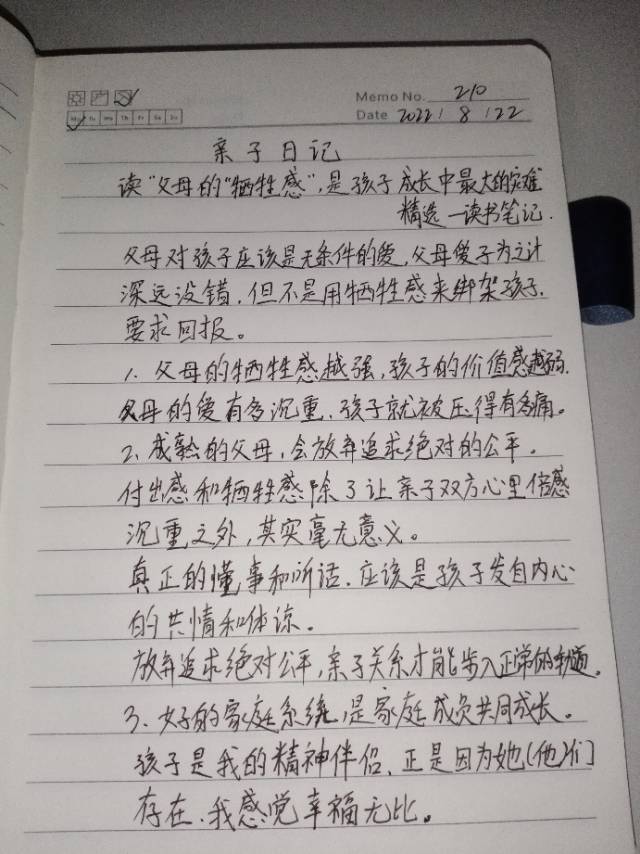 Memo No. 210
Mo Tu We Th Fr Sa Su
Date 2022 / 8 / 22
亲子日记
读"父母的"牺牲感",是孩子成长中最大的灾难
精选一读书笔记.
父母对孩子应该是无条件的爱,父母爱子为之计
深远没错,但不是用牺牲感来绑架孩子.
要求回报。
1、父母的牺牲感越强,孩子的价值感越弱.
父母的爱有多沉重,孩子就被压得有多痛。
2、成熟的父母,会放弃追求绝对的公平。
付出感和牺牲感除了让亲子双方心里倍感
沉重之外,其实毫无意义。
真正的懂事和听话.应该是孩子发自内心
的共情和体谅。
放弃追求绝对公平,亲子关系才能步入正常的轨道。
3、好的家庭系统,是家庭成员共同成长。
孩子是我的精神伴侣.正是因为她(他)们
存在.我感觉幸福无比。